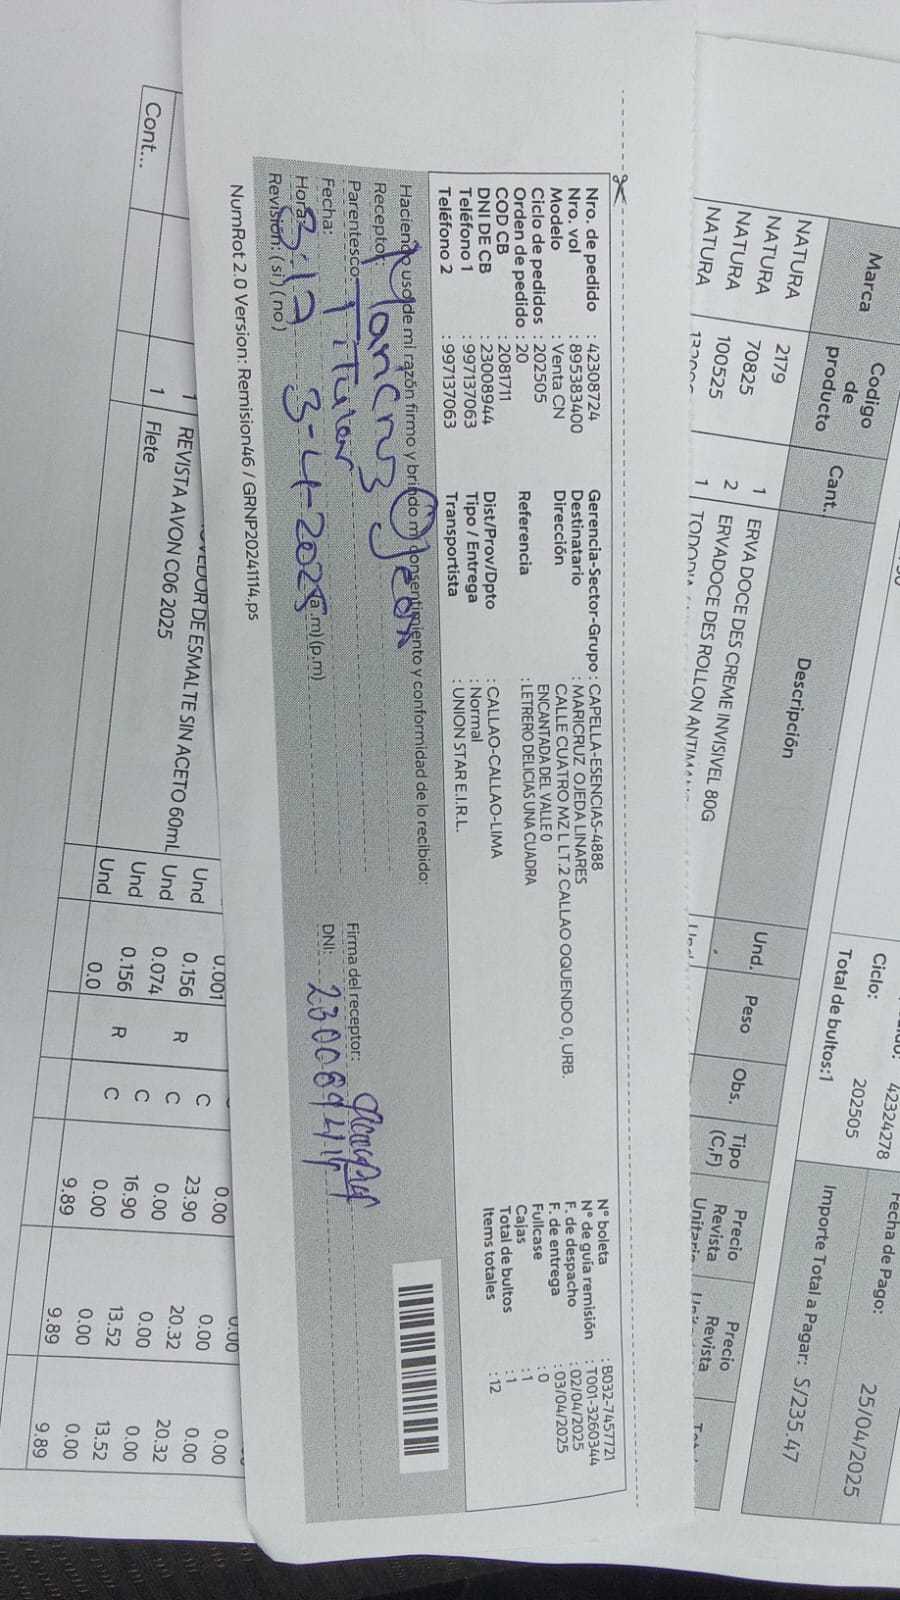 42324278
Fecha de Pago:
25/04/2025
Ciclo:
202505
Total de bultos:1
Importe Total a Pagar: S/235.47
Marca
Codigo de producto
Cant.
Descripción
Und.
Peso
Obs.
Tipo (C,F)
Precio Revista Unitario
Precio Revista
NATURA 2179 1 ERVA DOCE DES CREME INVISIVEL 80G
NATURA 70825 2 ERVADOCE DES ROLLON
NATURA 100525 1
NATURA
Nro. de pedido : 42308724
Nro. vol : 895383400
Modelo : Venta CN
Ciclo de pedidos : 202505
Orden de pedido : 20
COD CB : 2081711
DNI DE CB : 23008944
Teléfono 1 : 997137063
Teléfono 2 : 997137063
Gerencia-Sector-Grupo : CAPELLA-ESENCIAS-4888
Destinatario : MARICRUZ OJEDA LINARES
Dirección : CALLE CUATRO MZ L LT.2 CALLAO OQUENDO 0, URB.
ENCANTADA DEL VALLE 0
Referencia : LETRERO DELICIAS UNA CUADRA
Dist/Prov/Dpto : CALLAO-CALLAO-LIMA
Tipo / Entrega : Normal
Transportista : UNION STAR E.I.R.L.
N° boleta : B032-7457721
N° de guía remisión : T001-3260344
F. de despacho : 02/04/2025
F. de entrega : 03/04/2025
Fullcase : 0
Cajas : 1
Total de bultos : 1
Items totales : 12
Haciendo uso de mi razón firmo y brindo mi consentimiento y conformidad de lo recibido:
Receptor: Maricruz Ojeda
Parentesco: Titular
Firma del receptor:
Fecha: 3-4-2025
DNI: 23008944
Hora: 3:17 (a.m) (p.m)
Revisión: ( si ) ( no )
NumRot 2.0 Version: Remision46 / GRNP20241114.ps
0.001 0.00 0.00 0.00
DE ESMALTE SIN ACETO 60mL Und 0.156 R C 23.90 20.32 20.32
1 REVISTA AVON C06 2025 Und 0.074 C 0.00 0.00 0.00
Und 0.156 R C 16.90 13.52 13.52
Und 0.0 0.00 0.00 0.00
Cont... 1 Flete 9.89 9.89 9.89